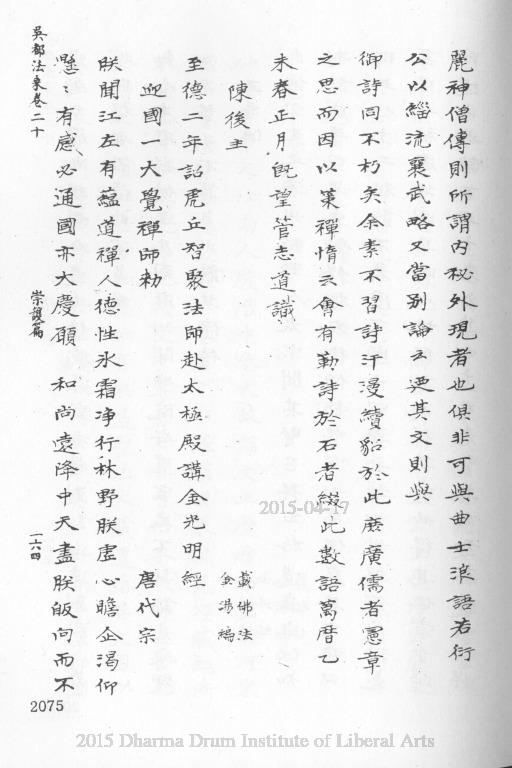 麗神僧傳則所謂内秘外現者也俱非可與曲士浪語若衍
公以緇流襄武略又當別論云要其文則與
御詩同不朽矣余素不習詩汗漫續貂於此庶廣儒者憲章
之思而因以策禪惰云會有勒詩於石者綴此數語萬曆乙
未春正月既望管志道識
陳後主
至德二年詔虎丘智聚法師赴太極殿講金光明經
載佛法
金湯編
迎國一大覺禪師勅
唐代宗
朕聞江左有蘊道禪人德性氷霜净行林野朕虛心瞻企渴仰
懸〻有感必通國亦大慶願 和尚遠降中天盡朕皈向而不
吳都法乘卷二十
崇護篇
一六四
2075
2015-04-17
2015 Dharma Drum Institute of Liberal Arts